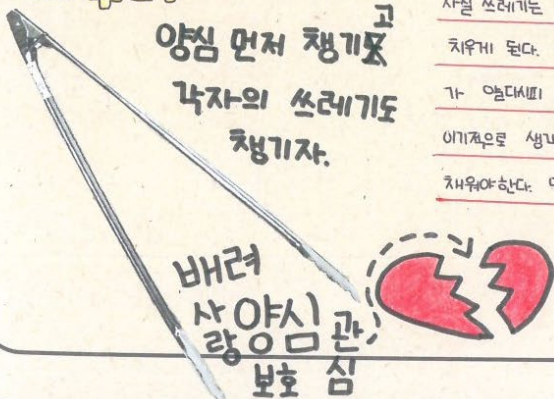 양심 먼저 챙기고
각자의 쓰레기도
챙기자.
사실 쓰레기는
치우게 된다.
이기적으로 생각
채워야한다.
배려
사랑
양심
관심
보호